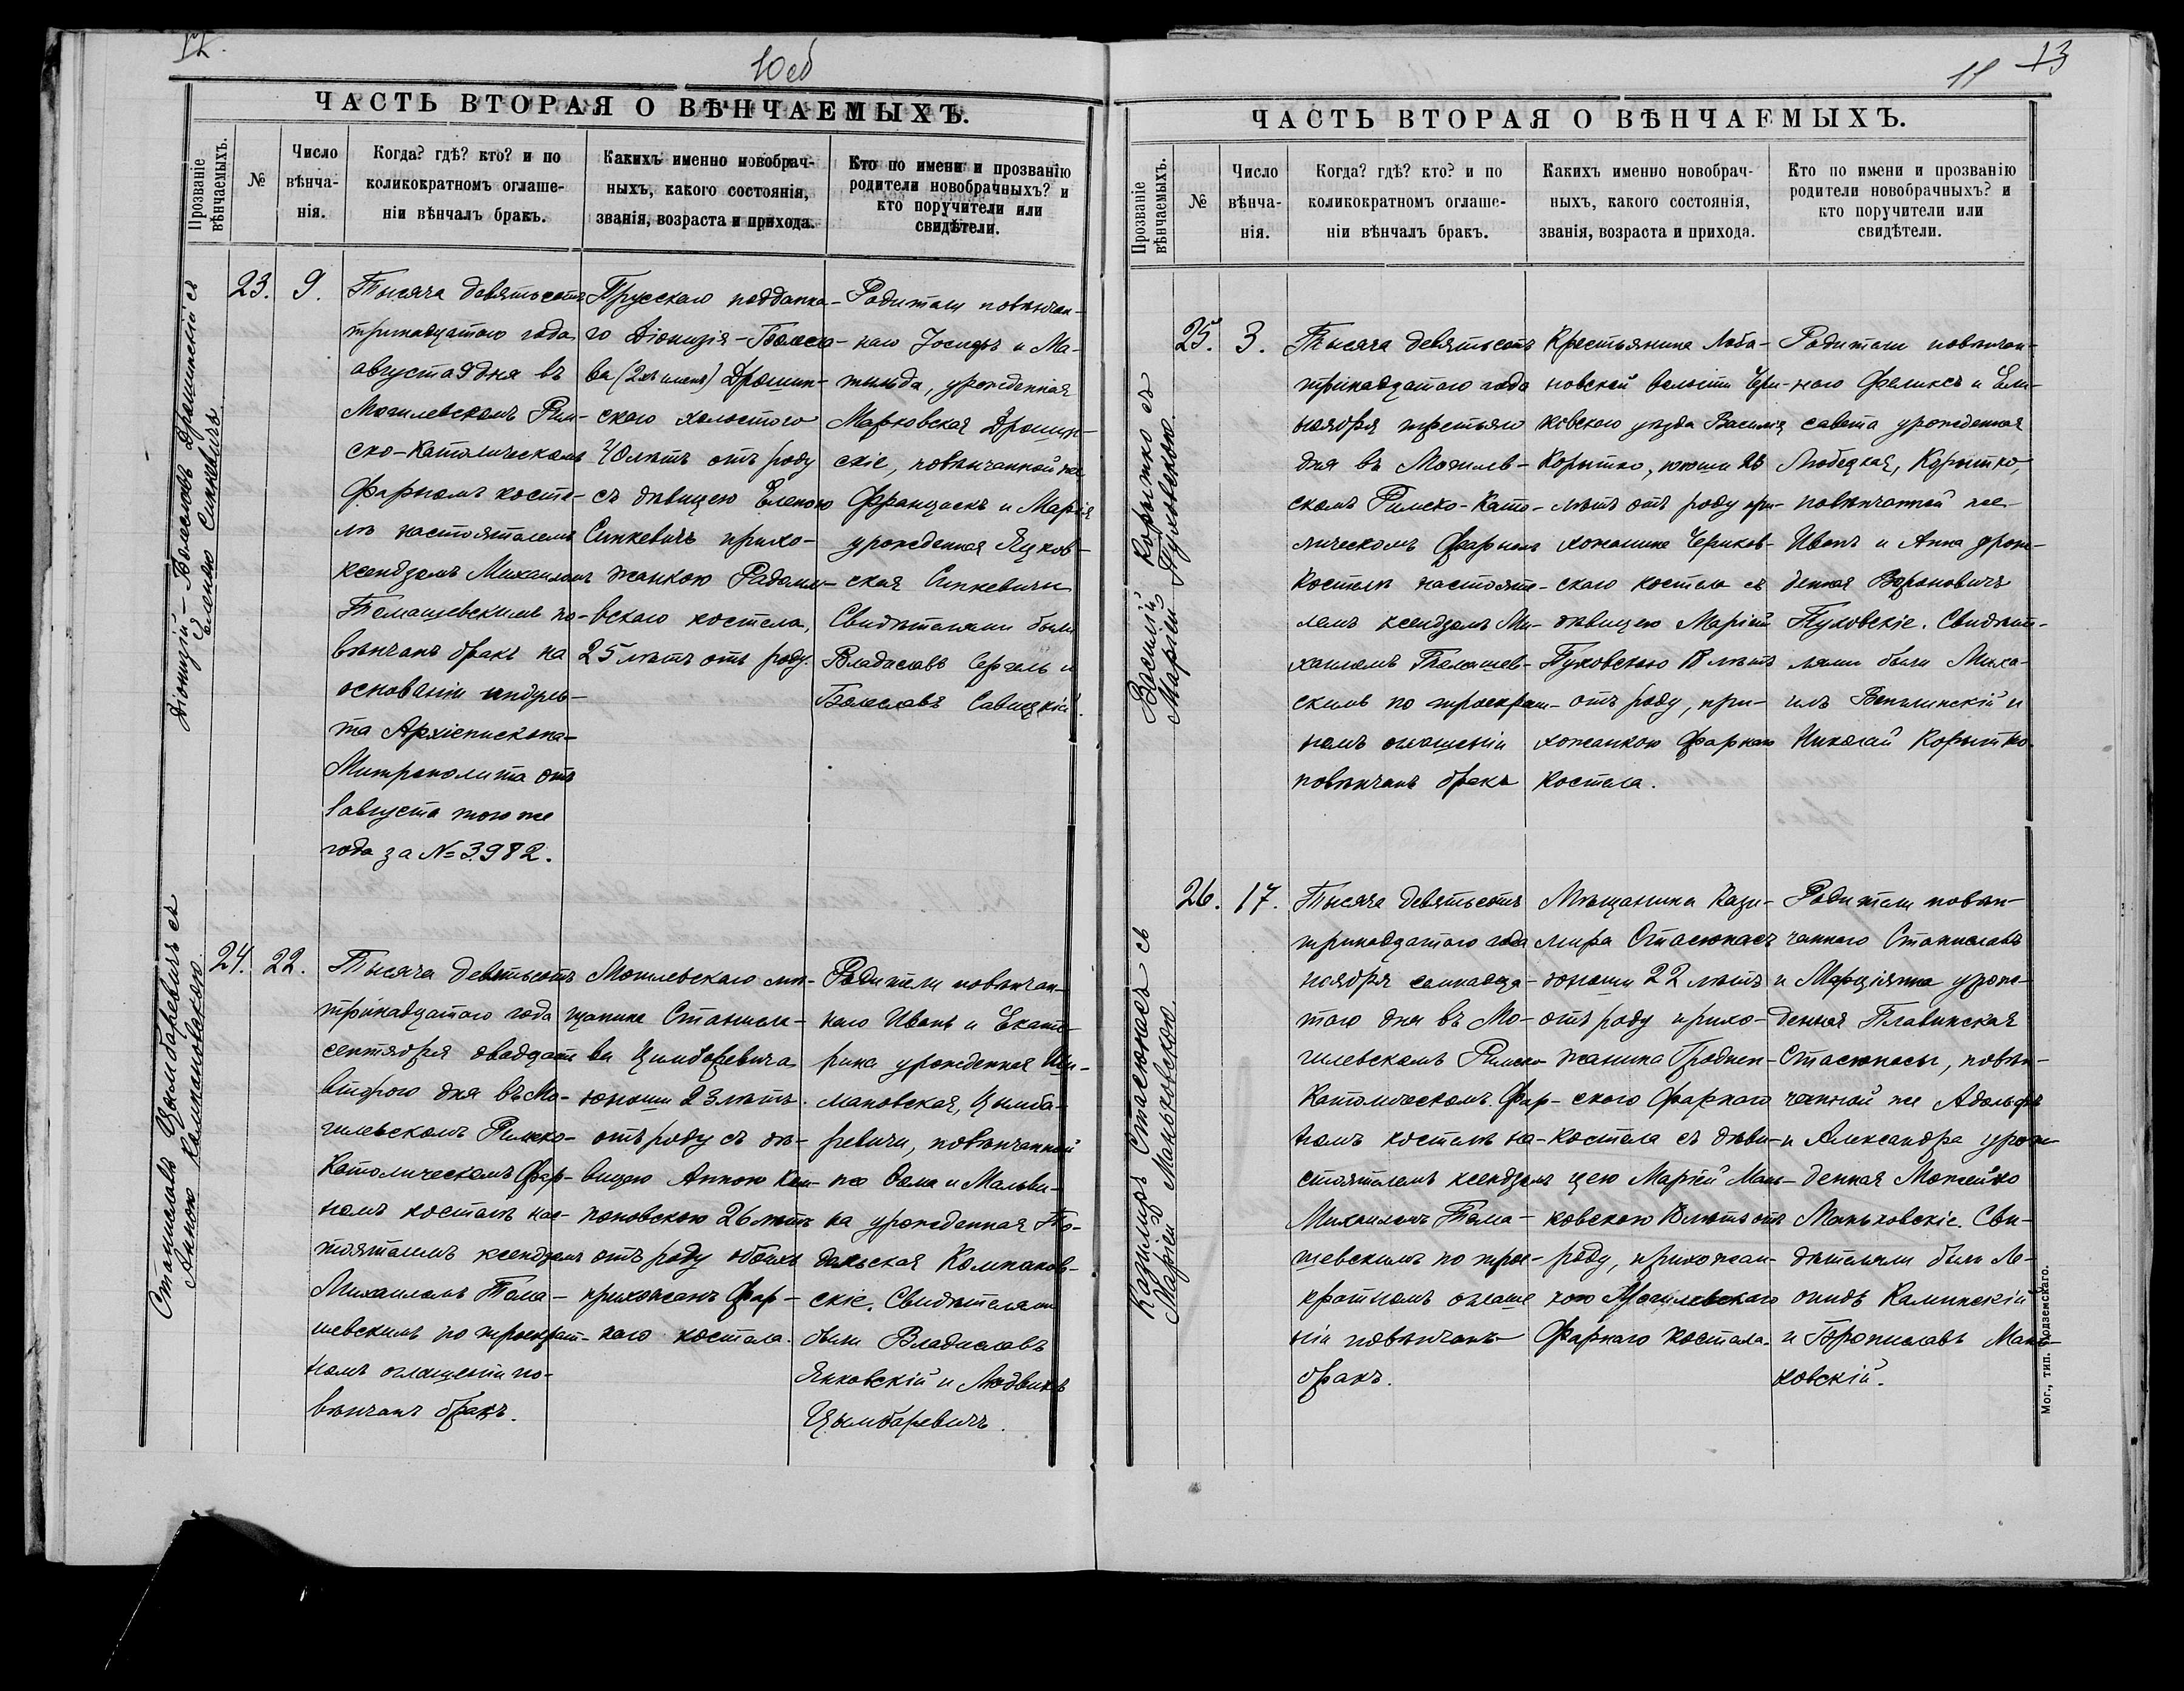 12.
10 об
ЧАСТЬ ВТОРАЯ О ВѢНЧАЕМЫХЪ.
Прозваніе вѣнчаемыхъ.
№
Число вѣнча-нія.
Когда? гдѣ? кто? и по коликократномъ оглаше-ніи вѣнчалъ бракъ.
Какихъ именно новобрач-ныхъ, какого состоянія, званія, возраста и прихода.
Кто по имени и прозванію родители новобрачныхъ? и кто поручители или свидѣтели.
Діонизій-Болеславъ Дрошинскій съ
Еленою Синкевичъ
23.
9.
Тысяча девятьсотъ
тринадцатого года
августа 9 дня въ
Могилевскомъ Рим-
ско-Католическомъ
Фарномъ косте-
лѣ настоятелемъ
ксендзомъ Михаиломъ
Томашевскимъ по-
вѣнчанъ бракъ на
основаніи индуль-
та Архіепископа-
Митрополита отъ
1 августа того же
года за № 3982.
Прусскаго подданна-
го Діонизія-Болесла-
ва (2хъ именъ) Дрошин-
скаго холостого
40 лѣтъ отъ роду
съ дѣвицею Еленою
Синкевичъ прихо-
жанкою Радоми-
вскаго костела,
25 лѣтъ отъ роду.
Родители повѣнчан-
наго Іосифъ и Ма-
тильда, урожденная
Марковская Дрошин-
скіе, повѣнчанной же
Францискъ и Марія
урожденная Яцков-
ская Синкевичи
Свидѣтелями были
Владиславъ Сергель и
Болеславъ Савицкій.
Станиславъ Цымбаревичъ съ
Анною Компановскою.
24.
22.
Тысяча девятьсотъ
тринадцатого года
сентября двадцать
второго дня въ Мо-
гилевскомъ Римско-
Католическомъ Фар-
номъ костелѣ нас-
тоятелемъ ксендзомъ
Михаиломъ Тома-
шевскимъ по троекрат-
номъ оглашеніи по-
вѣнчанъ бракъ.
Могилевскаго мѣ-
щанина Станисла-
ва Цымбаревича
юноши 23 лѣтъ
отъ роду съ дѣ-
вицею Анною Ком-
пановскою 26 лѣтъ
отъ роду обоихъ
прихожанъ Фар-
наго костела.
Родители повѣнчан-
наго Иванъ и Екате-
рина урожденная Ши-
мановская, Цымба-
ревичи, повѣнчанной
же Фома и Мальви-
на урожденная По-
дольская Компанов-
скіе. Свидѣтелями
были Владиславъ
Янковскій и Людвикъ
Цымбаревичъ.
11
13
ЧАСТЬ ВТОРАЯ О ВѢНЧАЕМЫХЪ.
Прозваніе вѣнчаемыхъ.
№
Число вѣнча-нія.
Когда? гдѣ? кто? и по коликократномъ оглаше-ніи вѣнчалъ бракъ.
Какихъ именно новобрач-ныхъ, какого состоянія, званія, возраста и прихода.
Кто по имени и прозванію родители новобрачныхъ? и кто поручители или свидѣтели.
Василій Корытко съ
Маріей Пуховскою.
25.
3.
Тысяча девятьсотъ
тринадцатого года
ноября третьяго
дня въ Могилев-
скомъ Римско-Като-
лическомъ Фарномъ
костелѣ настояте-
лемъ ксендзомъ Ми-
хаиломъ Томашев-
скимъ по троекрат-
номъ оглашеніи
повѣнчанъ бракъ
Крестьянина Лоба-
новской волости Чери-
ковскаго уѣзда Василія
Корытко, юноши 28
лѣтъ отъ роду при-
хожанина Чериков-
скаго костела съ
дѣвицею Маріей
Пуховскою 18 лѣтъ
отъ роду, при-
хожанкою Фарнаго
костела.
Родители повѣнчан-
наго Феликсъ и Ели-
савета урожденная
Любецкая, Корытко,
повѣнчанной же
Иванъ и Анна урож-
денная Вороновичъ
Пуховскіе. Свидѣте-
лями были Миха-
илъ Венглинскій и
Николай Корытко.
Казиміръ Стасюкасъ съ
Маріей Маньковскою
26.
17.
Тысяча девятьсотъ
тринадцатого года
ноября семнадца-
таго дня въ Мо-
гилевскомъ Римско
Католическомъ Фар-
номъ костелѣ на-
стоятелемъ ксендзомъ
Михаиломъ Тома-
шевскимъ по трое-
кратномъ оглаше
ніи повѣнчанъ
бракъ.
Мѣщанина Кази-
міра Стасюкасъ
юноши 22 лѣтъ
отъ роду прихо-
жанина Гроднен-
скаго Фарнаго
костела съ дѣви-
цею Маріей Мань-
ковскою 18 лѣтъ отъ
роду, прихожан-
кою Могилевскаго
Фарнаго костела.
Родители повѣн-
чаннаго Станиславъ
и Марціянна урож-
денная Плавинская
Стасюкасы, повѣн-
чанной же Адольфъ
и Александра урож-
денная Можейко
Маньковскіе. Сви-
дѣтелями были Ле-
онидъ Калинскій
и Брониславъ Мань-
ковскій.
Мог., тип. Подземскаго.